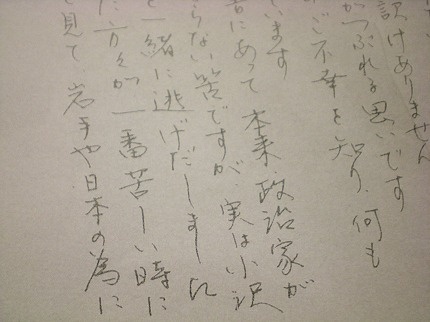 訳けありません
がつぶれる思いです
ご不幸を知り、何も
います
害にあって本来、政治家が
らない筈ですが、実は小沢
一緒に逃げだしました
た方々が一番苦しい時に
見て岩手や日本の為に